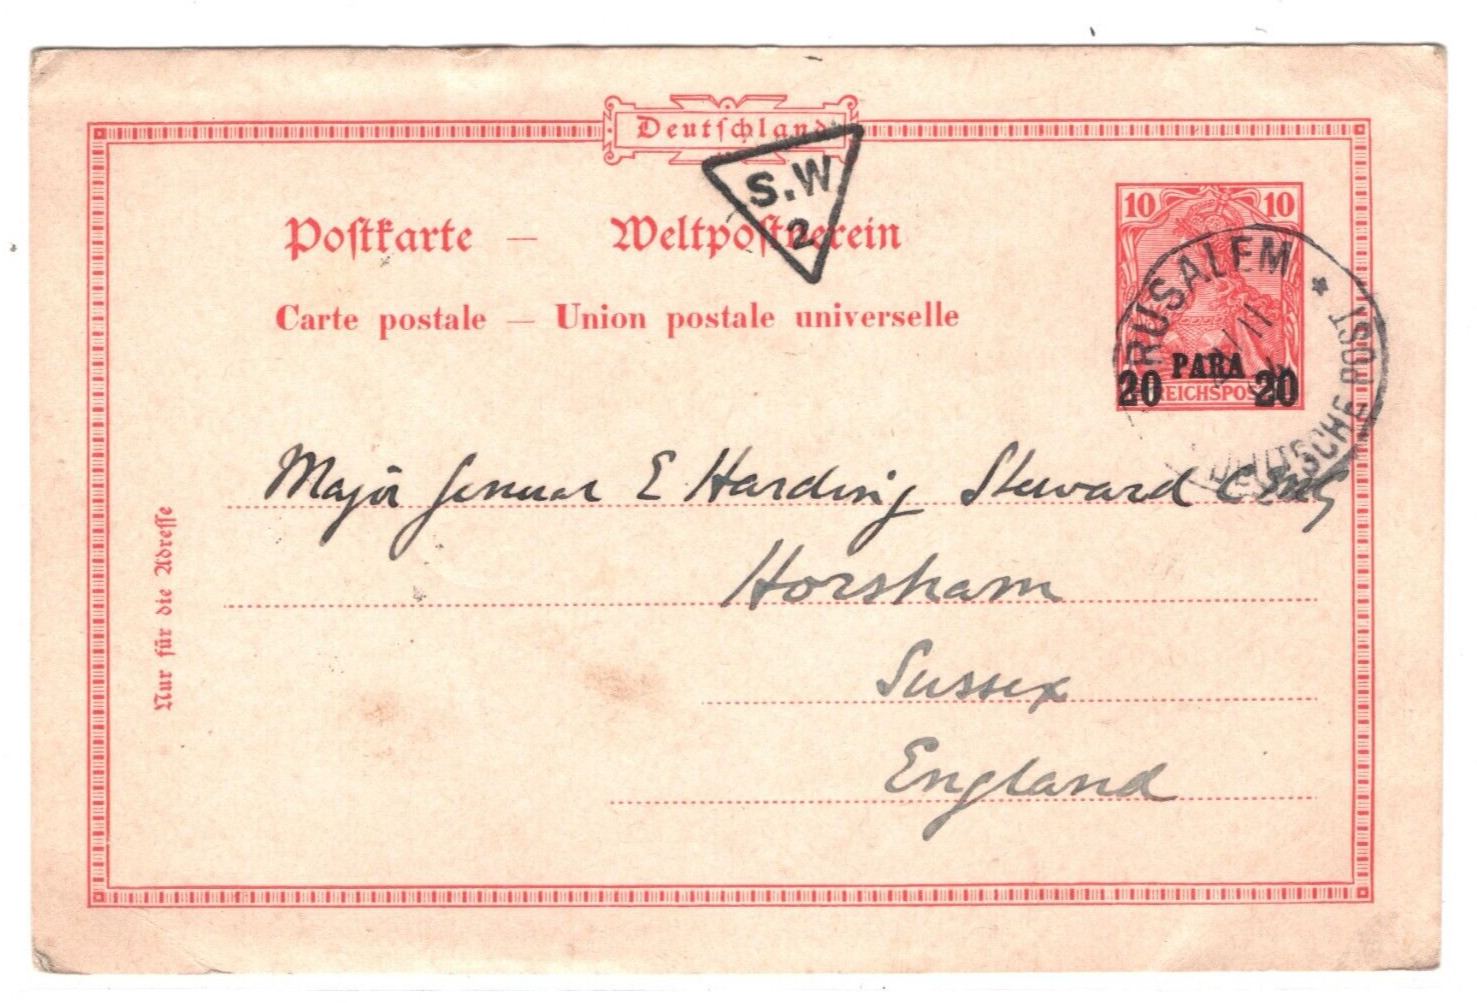 Deutschland
S.W
2
Postkarte — Weltpostverein
Carte postale — Union postale universelle
10 10
PARA
20 20
REICHSPOST
JERUSALEM
* DEUTSCHE POST
Major General E Harding Steward
Horsham
Sussex
England
Nur für die Adresse